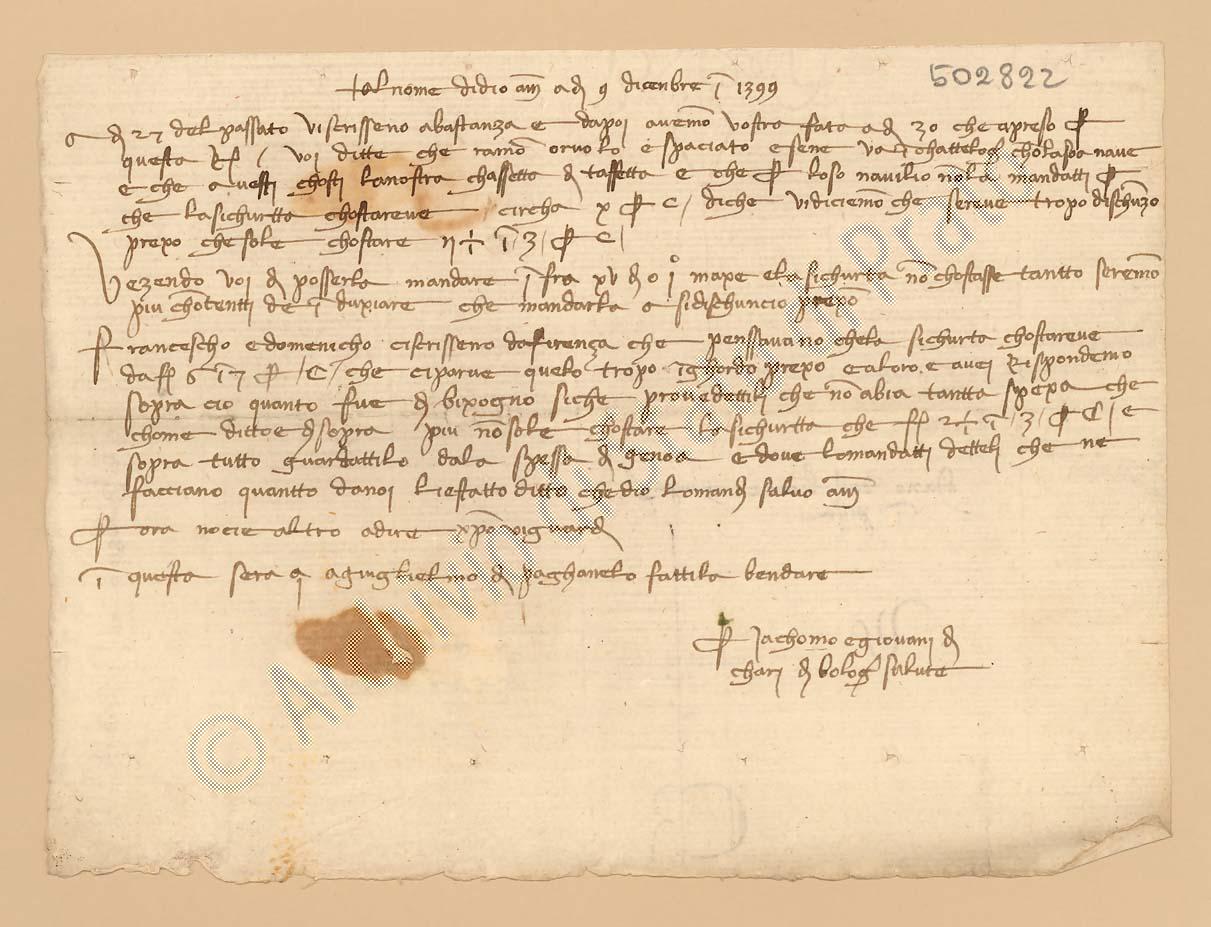 502822
+ al nome didio am̄ a dj 9 dicenbre j̄ 1399
dj 27 del passato vi scrissemo abastanza e dapoi avemo vostra fata a dj 30 che apreso ꝑ
questa voi ditte che ramo orvolo e spaciato e sene va chatteloǧ cho la soa nave
e che avesti chosti la nostra chassetta dj taffetta e che ꝑ loso navilio nola mandatti ꝑ
che la sichurtta chostareve circha x ꝑ c / diche vi diciemo che sereve tropo dischunzo
prexo che sole chostare ꝑ c /
Vezendo voi dj posserla mandare j̄ fra xv dj o j° mexe e la sichurta nō chostasse tantto seremo
piu chotentti de j̄ duxiare che mandarla a si dischuncio prexo
Francescho e domenicho ci scrisseno da firenza che penssavano che la sichurta chostareve
da 6 j̄ 7 ꝑ / c / che ci parve quelo tropo inghordo prexo e a loro e a voi rispondemo
sopra cio quanto fue dj bixogno si che provedettili che nō abia tantta spexa che
chome ditto e dj sopra piu nō sole chostare la sichurtta che 3 / ꝑ c / e
sopra tutto guardattilo dala spessa dj genoa e dove lo mandatti detteli che ne
facciano quantto da noi li e statto ditto che dio lo mandj salvo am̄
ꝑ ora no cie altro a dire xp̄o vi guardj
j̄ questa sera a guglielmo dj paghanelo fattila bendare
ꝑ Jachomo e giovani dj
charj dj boloǧ salute
© Archivio di Stato di Prato